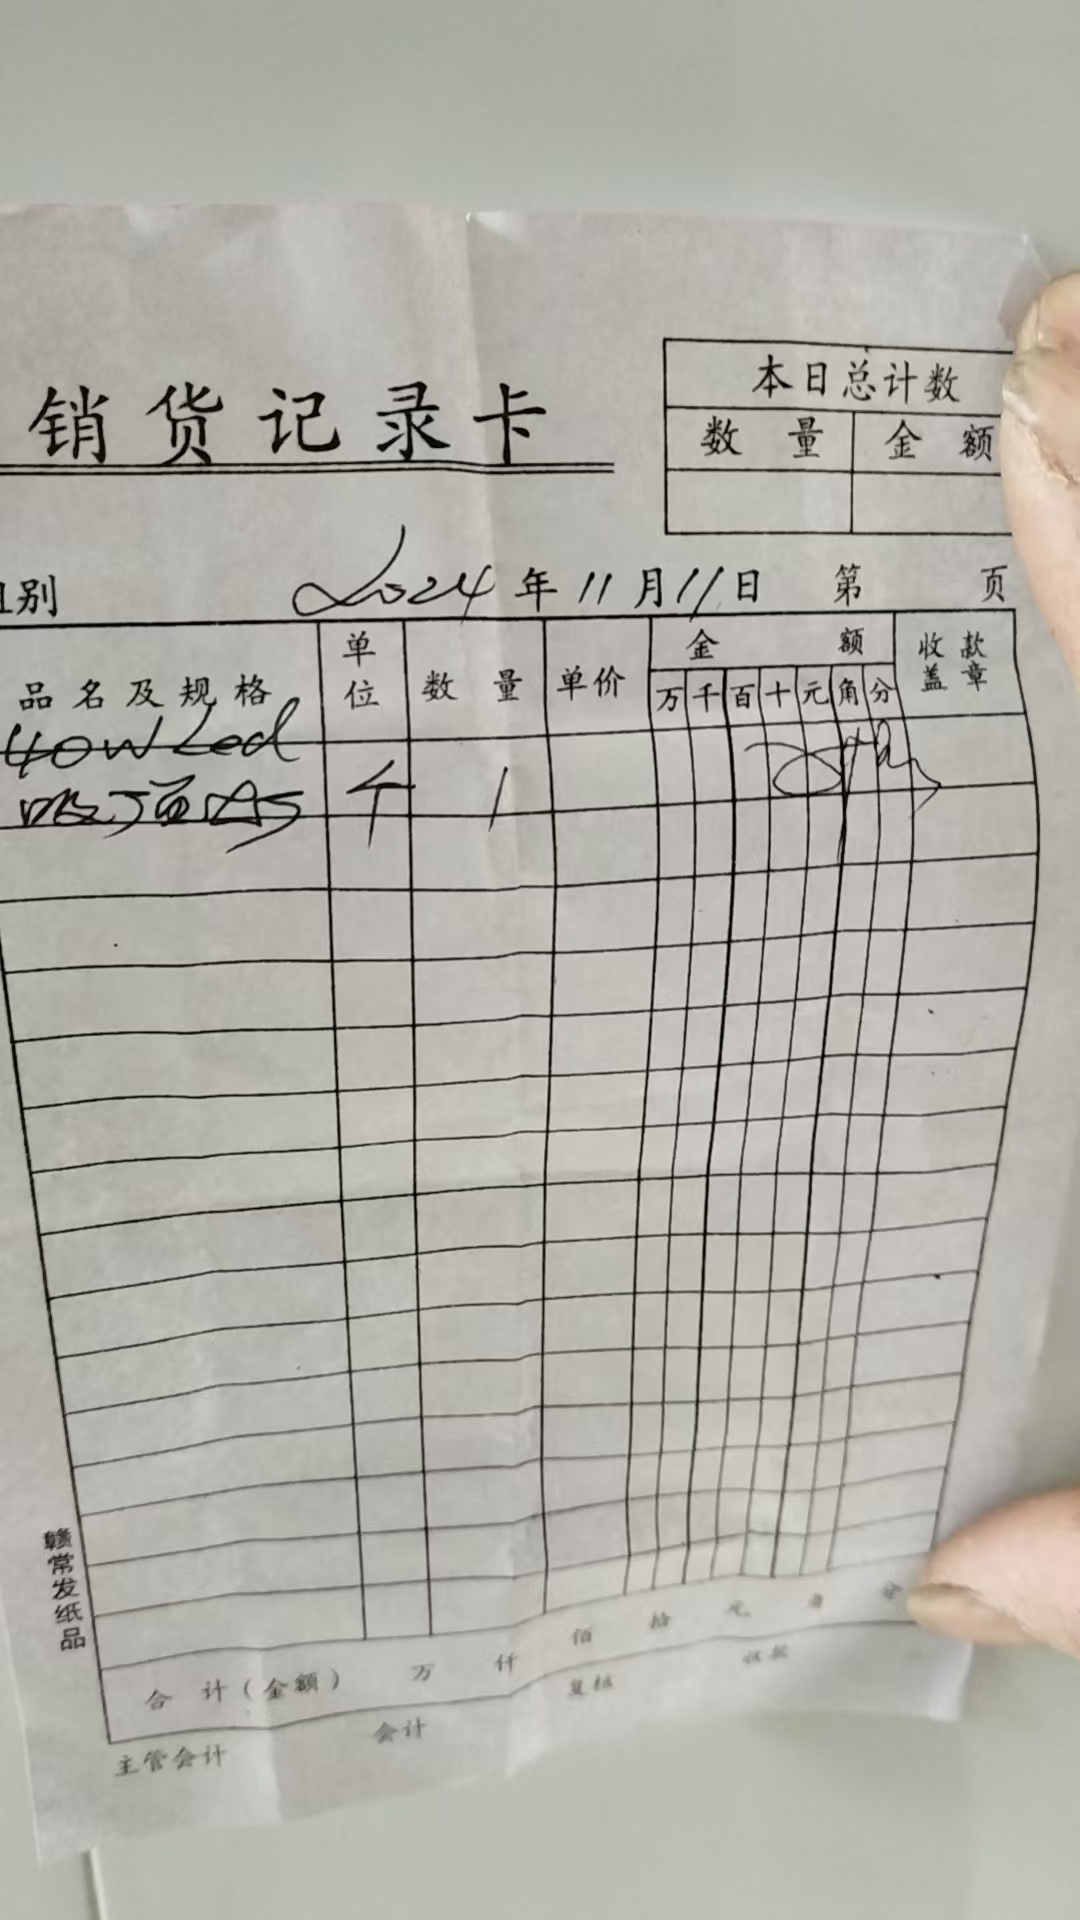 销货记录卡
本日总计数
数量 金额
别 2024年11月11日 第 页
品名及规格 单位 数量 单价 金额 收款盖章
万千百十元角分
40W Led
吸顶灯 个 1
合计(金额) 万 仟 佰 拾 元 角 分
主管会计 会计 复核 收款
赣常发纸品